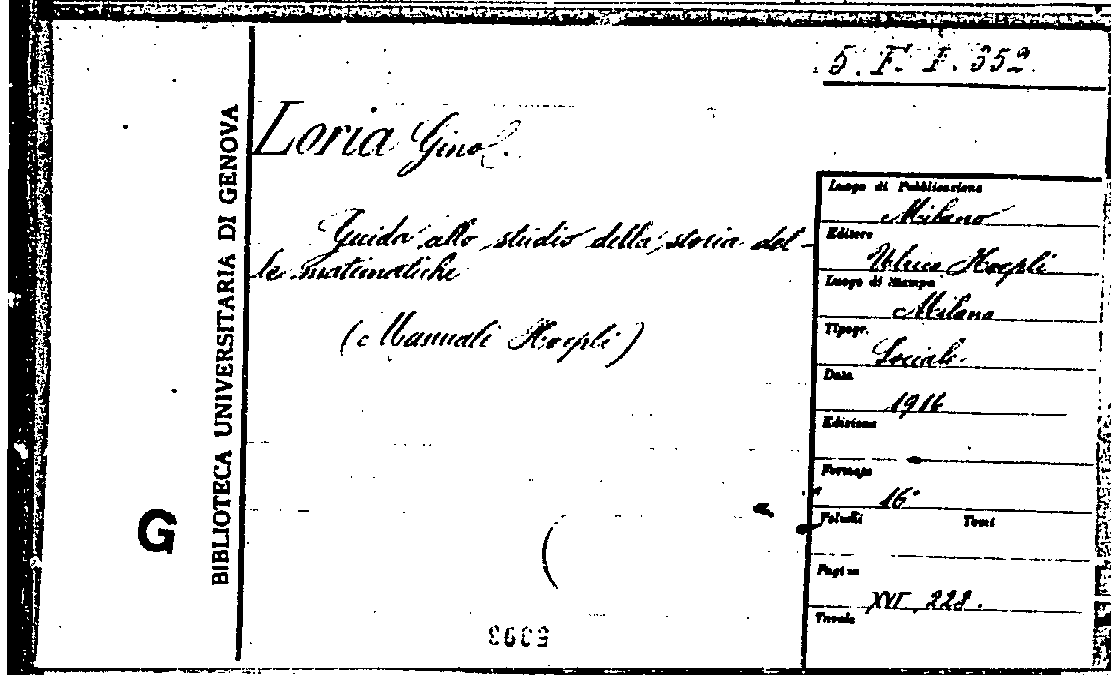 5. F. I. 352.
Loria Gino.
Guida allo studio della storia del-
le matematiche
(Manuali Hoepli)
BIBLIOTECA UNIVERSITARIA DI GENOVA
G
Luogo di Pubblicazione
Milano
Editore
Ulrico Hoepli
Luogo di Stampa
Milano
Tipogr.
Sociale.
Data
1916
Edizione
Formato
16°
Volumi Tomi
Pagine
XVI, 228.
Tavole
5393